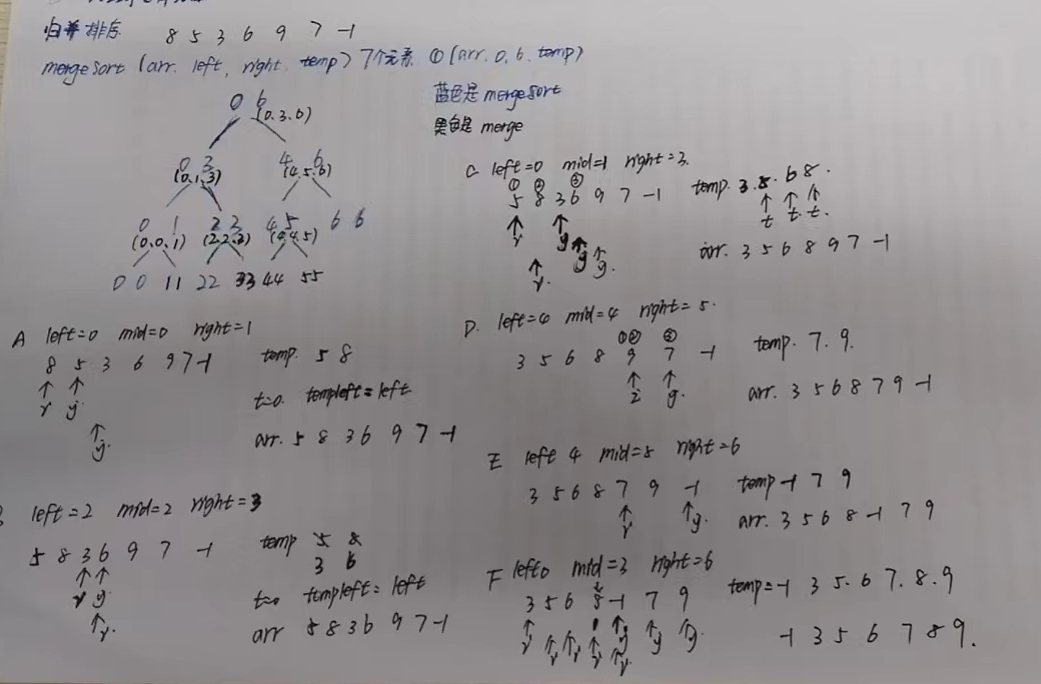 归并排序 8 5 3 6 9 7 -1
mergeSort (arr. left, right. temp) 7个元素 ① (arr. 0, 6. temp)
蓝色是 mergesort
黑色是 merge
0 6
(0.3.6)
0 3
(0.1.3)
4 6
(4.5.6)
0 1
(0.0.1)
2 3
(2.2.3)
4 5
6 6
0 0 11 22 33 44 55
A left=0 mid=0 right=1
8 5 3 6 9 7 -1 temp. 5 8
t=0. templeft = left
arr. 5 8 3 6 9 7 -1
left=2 mid=2 right=3
5 8 3 6 9 7 -1 temp 5 8
3 6
t=0 templeft = left
arr 5 8 3 6 9 7 -1
C left=0 mid=1 right=3.
① ② ③
5 8 3 6 9 7 -1 temp. 3. 5. 6 8.
t. t. t.
arr. 3 5 6 8 9 7 -1
D. left=4 mid=4 right=5.
①② ③
3 5 6 8 9 7 -1 temp. 7. 9.
arr. 3 5 6 8 7 9 -1
E left 4 mid=5 right=6
3 5 6 8 7 9 -1 temp -1 7 9
arr. 3 5 6 8 -1 7 9
F left0 mid=3 right=6
3 5 6 8 -1 7 9 temp=-1 3 5. 6 7. 8. 9
-1 3 5 6 7 8 9.